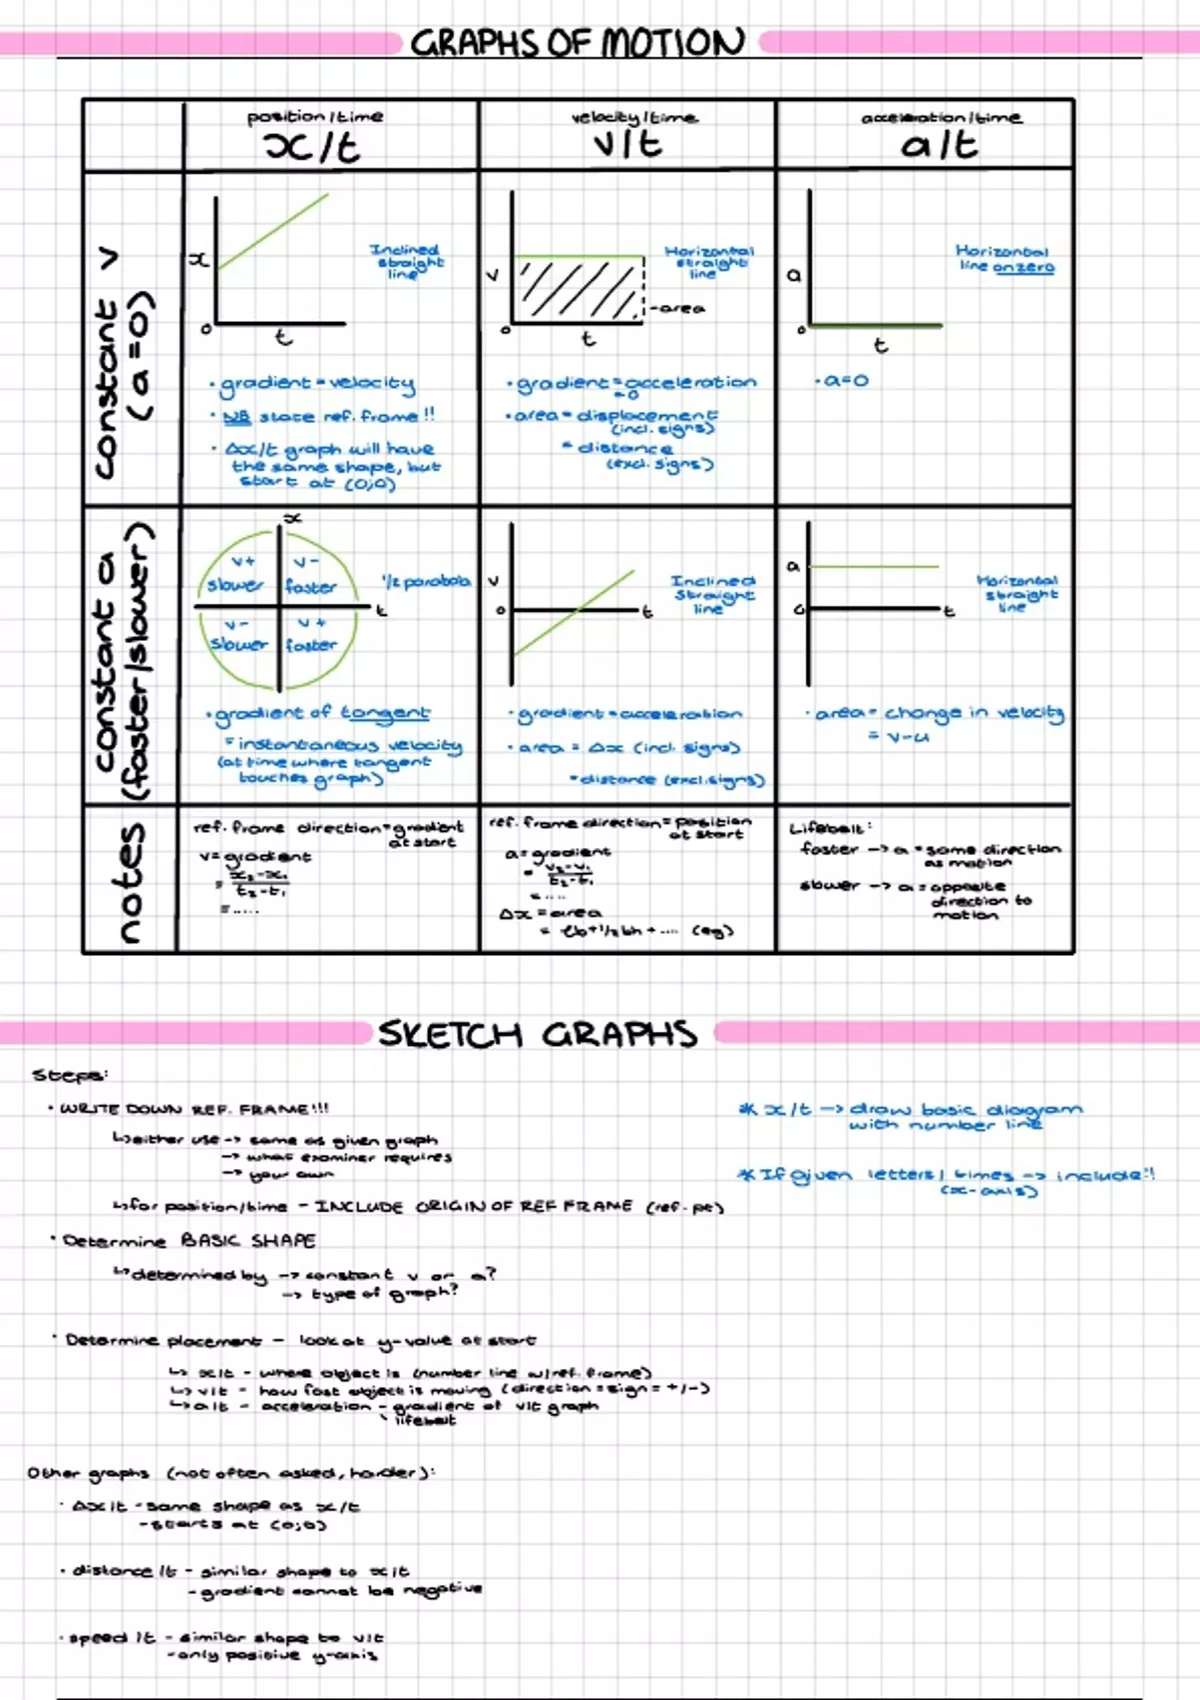 GRAPHS OF MOTION
position/time
x/t
velocity/time
v/t
acceleration/time
a/t
constant v
(a=0)
x
0
t
Inclined
straight
line
• gradient = velocity
• NB state ref. frame!!
• Δx/t graph will have
the same shape, but
start at (0;0)
v
0
t
-area
Horizontal
straight
line
• gradient = acceleration
=0
• area = displacement
(incl. signs)
= distance
(excl. signs)
a
0
t
Horizontal
line on zero
• a=0
constant a
(faster/slower)
x
t
v+
slower
v-
faster
v-
slower
v+
faster
1/2 parabola
• gradient of tangent
= instantaneous velocity
(at time where tangent
touches graph)
v
0
t
Inclined
Straight
line
• gradient = acceleration
• area = Δx (incl. signs)
= distance (excl. signs)
a
0
t
Horizontal
straight
line
• area = change in velocity
= v-u
notes
ref. frame direction = gradient
at start
v = gradient
= x₂-x₁
t₂-t₁
= .....
ref. frame direction = position
at start
a = gradient
= v₂-v₁
t₂-t₁
= ....
Δx = area
= lb + 1/2 bh + .... (eg)
Lifebelt:
faster -> a = same direction
as motion
slower -> a = opposite
direction to
motion
SKETCH GRAPHS
Steps:
• WRITE DOWN REF. FRAME!!!
↳ either use -> same as given graph
-> what examiner requires
-> your own
↳ for position/time - INCLUDE ORIGIN OF REF FRAME (ref. pt)
* x/t -> draw basic diagram
with number line
* If given letters/times -> include!!
(x-axis)
• Determine BASIC SHAPE
↳ determined by -> constant v or a?
-> type of graph?
• Determine placement - look at y-value at start
↳ x/t - where object is (number line w/ref. frame)
↳ v/t - how fast object is moving (direction = sign = +/-)
↳ a/t - acceleration - gradient of v/t graph
lifebelt
Other graphs (not often asked, harder):
• Δx/t - same shape as x/t
- starts at (0;0)
• distance/t - similar shape to x/t
- gradient cannot be negative
• speed/t - similar shape to v/t
- only positive y-axis